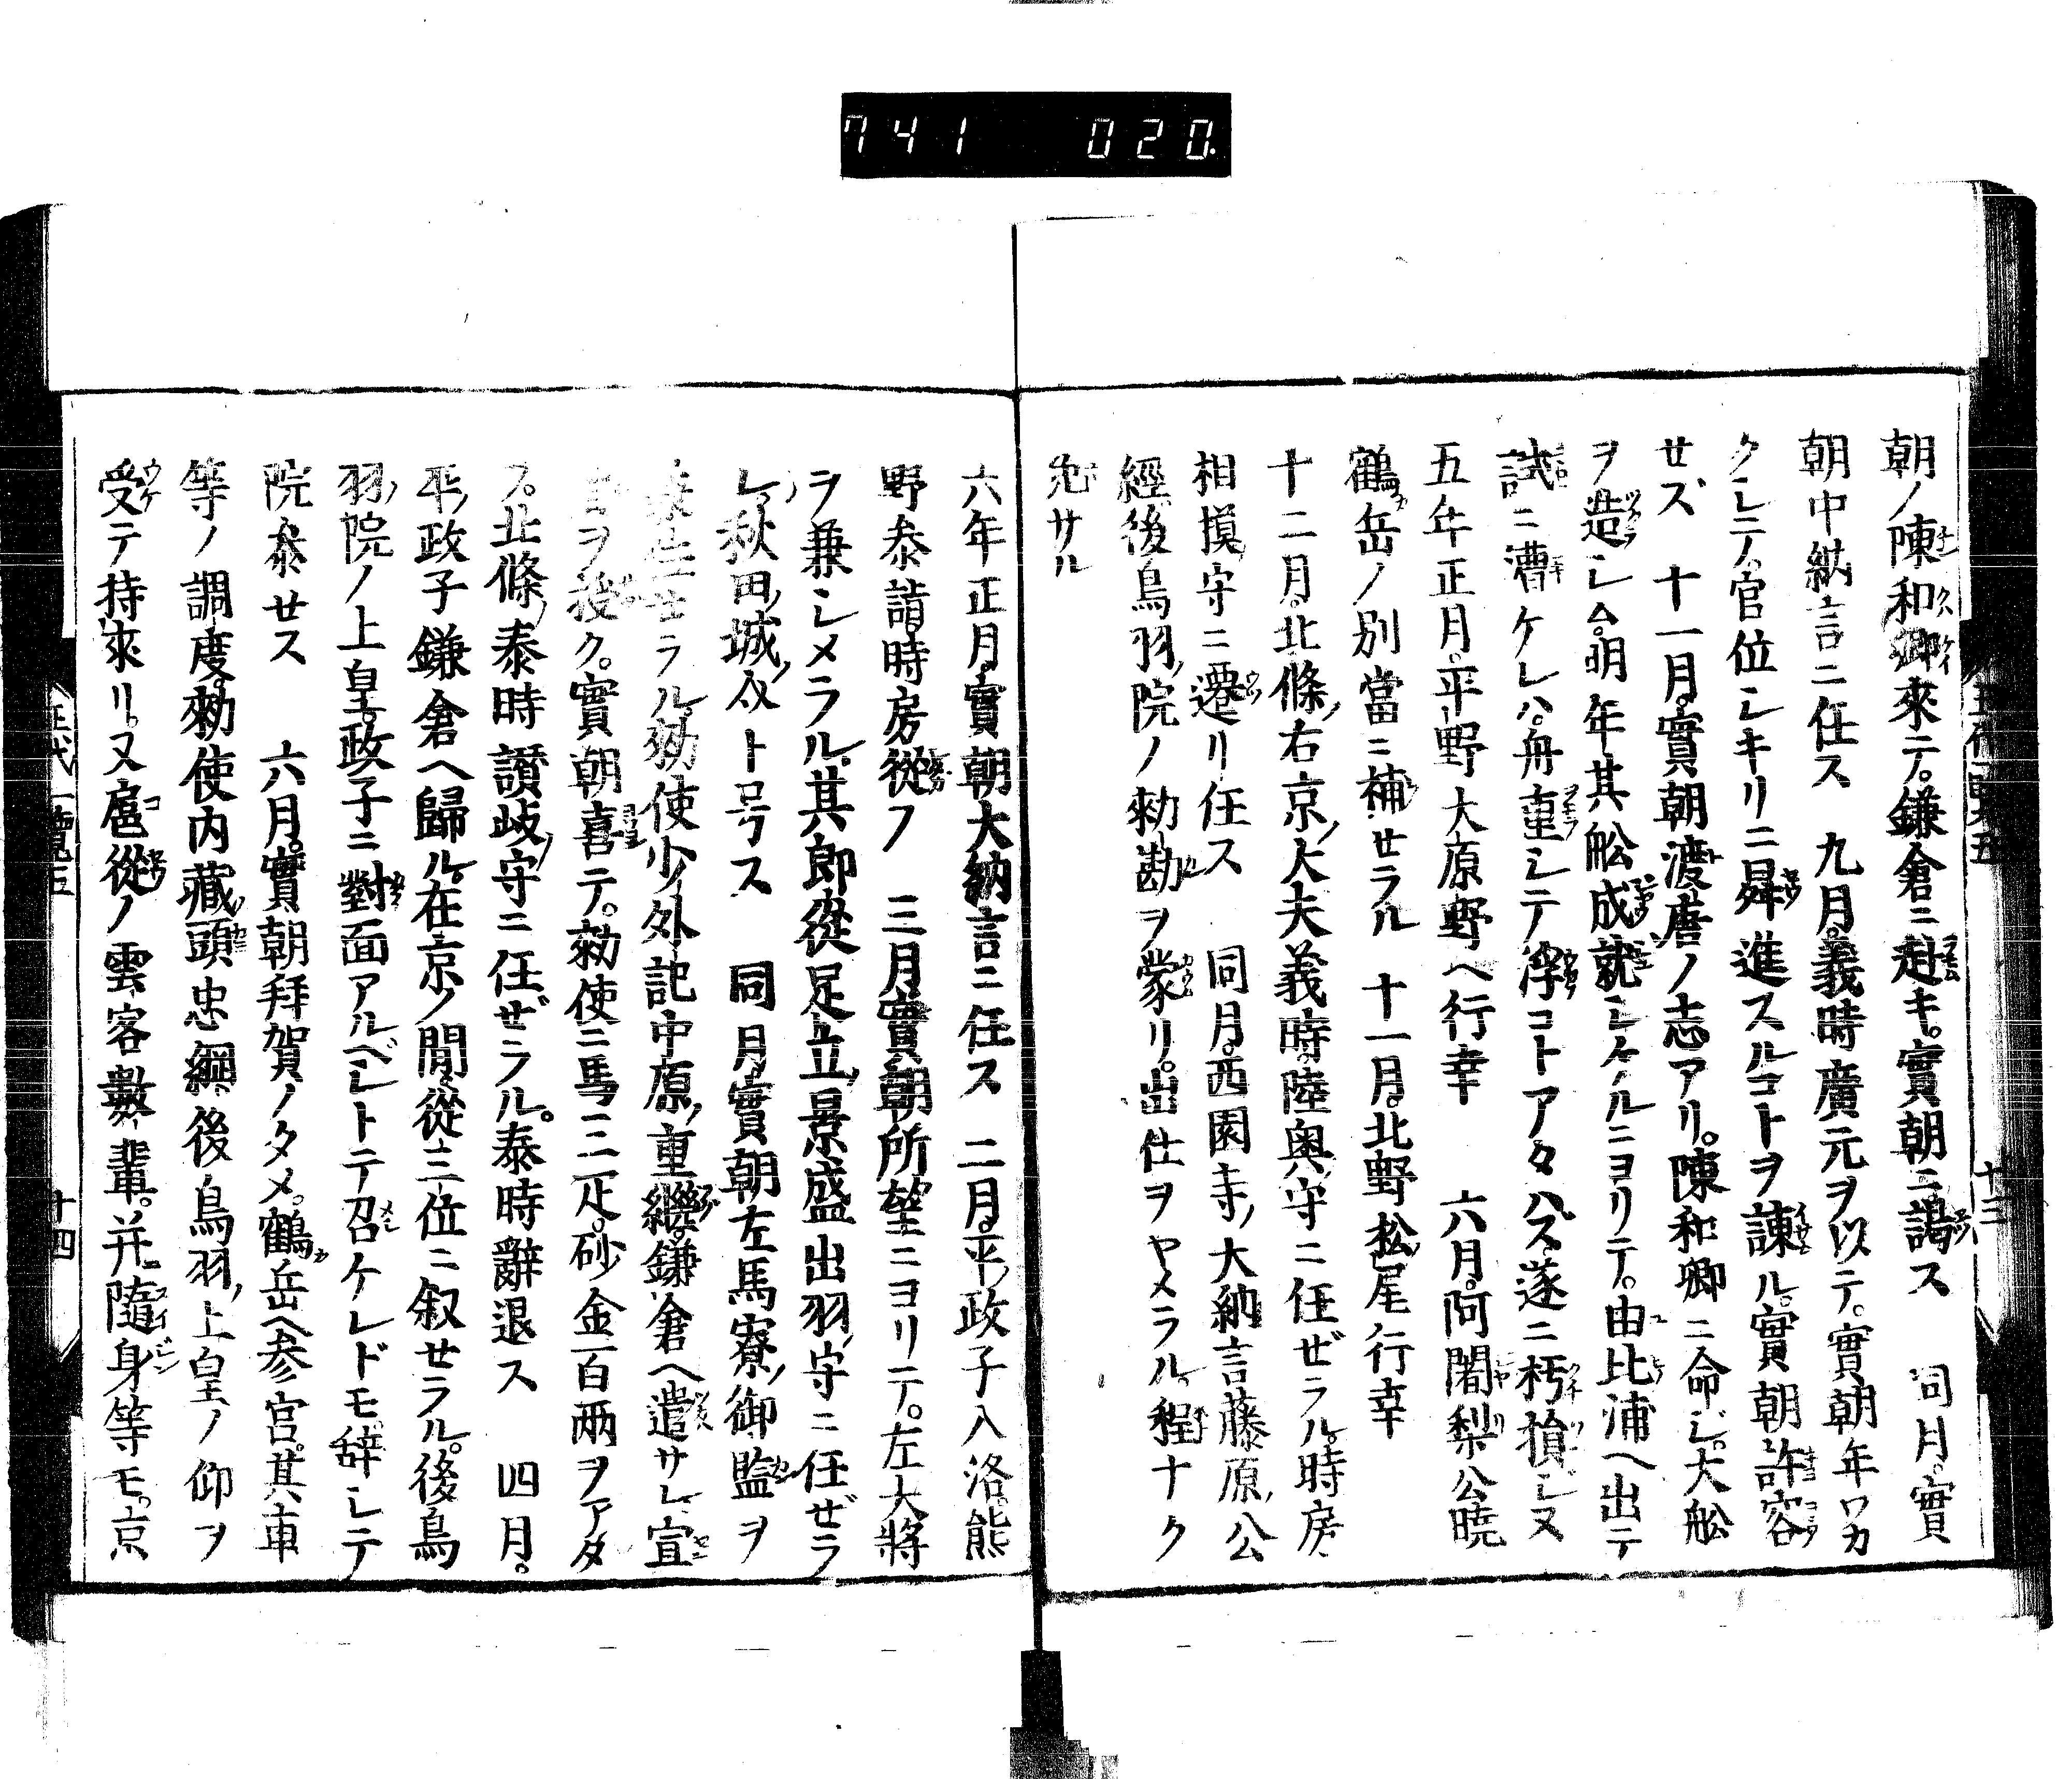 741 020
朝ノ陳和卿來テ。鎌倉ニ赴キ。實朝ニ謁ス 同月。實
朝中納言ニ任ス 九月。義時廣元ヲ以テ。實朝年ワカ
クシテ。官位シキリニ昇進スルコトヲ諫ル。實朝許容
せズ 十一月。實朝渡唐ノ志アリ。陳和卿ニ命ジ。大舩
ヲ造シム。明年其舩成就シケルニヨリテ。由比浦へ出テ
試ニ漕ケレハ。舟重シテ浮コトアタハズ。遂ニ朽損シヌ
五年正月。平野大原野へ行幸 六月。阿闍梨公曉
鶴岳ノ別當ニ補せラル 十一月。北野松尾行幸
十二月。北條右京大夫義時。陸奥守ニ任ぜラル。時房
相摸守ニ遷リ任ス 同月。西園寺大納言藤原公
經。後鳥羽院ノ勅勘ヲ蒙リ。出仕ヲヤメラル。程ナク
免サル
六年正月。實朝大納言ニ任ス 二月。平政子入洛。熊
野參詣。時房從フ 三月實朝所望ニヨリテ。左大將
ヲ兼シメラル。其郎從足立景盛出羽守ニ任ぜラ
レ。秋田城介ト号ス 同月。實朝左馬寮御監ヲ
兼任せラル。勅使少外記中原重繼。鎌倉へ遣サレ宣
旨ヲ授ク。實朝喜テ。勅使ニ馬三疋。砂金百兩ヲアタ
フ。北條泰時讃岐守ニ任ぜラル。泰時辭退ス 四月。
平政子鎌倉へ歸ル。在京ノ間。從三位ニ叙せラル。後鳥
羽院ノ上皇。政子ニ對面アルベシトテ召ケレドモ。辞シテ
院參せス 六月。實朝拜賀ノタメ。鶴岳へ参宮。其車
等ノ調度。勅使内藏頭忠綱後鳥羽上皇ノ仰ヲ
受テ持來リ。又扈從ノ雲客數輩。并隨身等モ。京
王代一覽五 十四